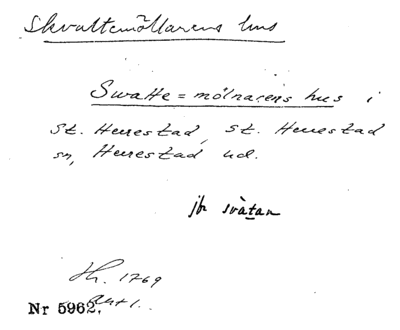 Skvattemöllarens hus
Swatte=mölnarens hus i
St. Herrestad, St. Herrestad
sn, Herrestad hd.
jfr svàtan
Hh. 1769
Akt 1.
Nr 5962.